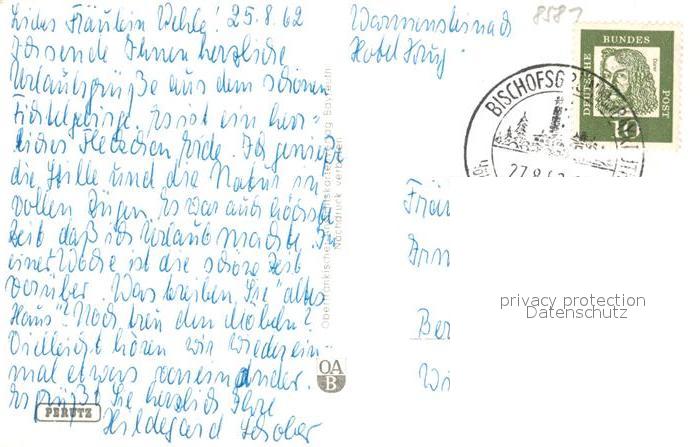 Liebes Fräulein Wehle! 25.8.62
Ich sende Ihnen herzliche
Urlaubsgrüße aus dem schönen
Fichtelgebirge. Es ist ein herr-
liches Fleckchen Erde. Ich genieße
die Stille und die Natur in
vollen Zügen. Es war auch höchste
Zeit daß ich Urlaub machte. In
einer Woche ist die schöne Zeit
vorüber. Was treiben Sie "altes
Haus"? Noch treu den Möbeln?
Vielleicht hören wir wieder ein-
mal etwas voneinander.
Es grüßt Sie herzlich Ihre
Hildegard
PERUTZ
Nachdruck verboten
OA
B
Warmensteinach
Hotel Krug
8587
BUNDES
DEUTSCHE
POST
Dürer
10
BISCHOFSG
27.8.62
Fräu
Ber
Wi
privacy protection
Datenschutz